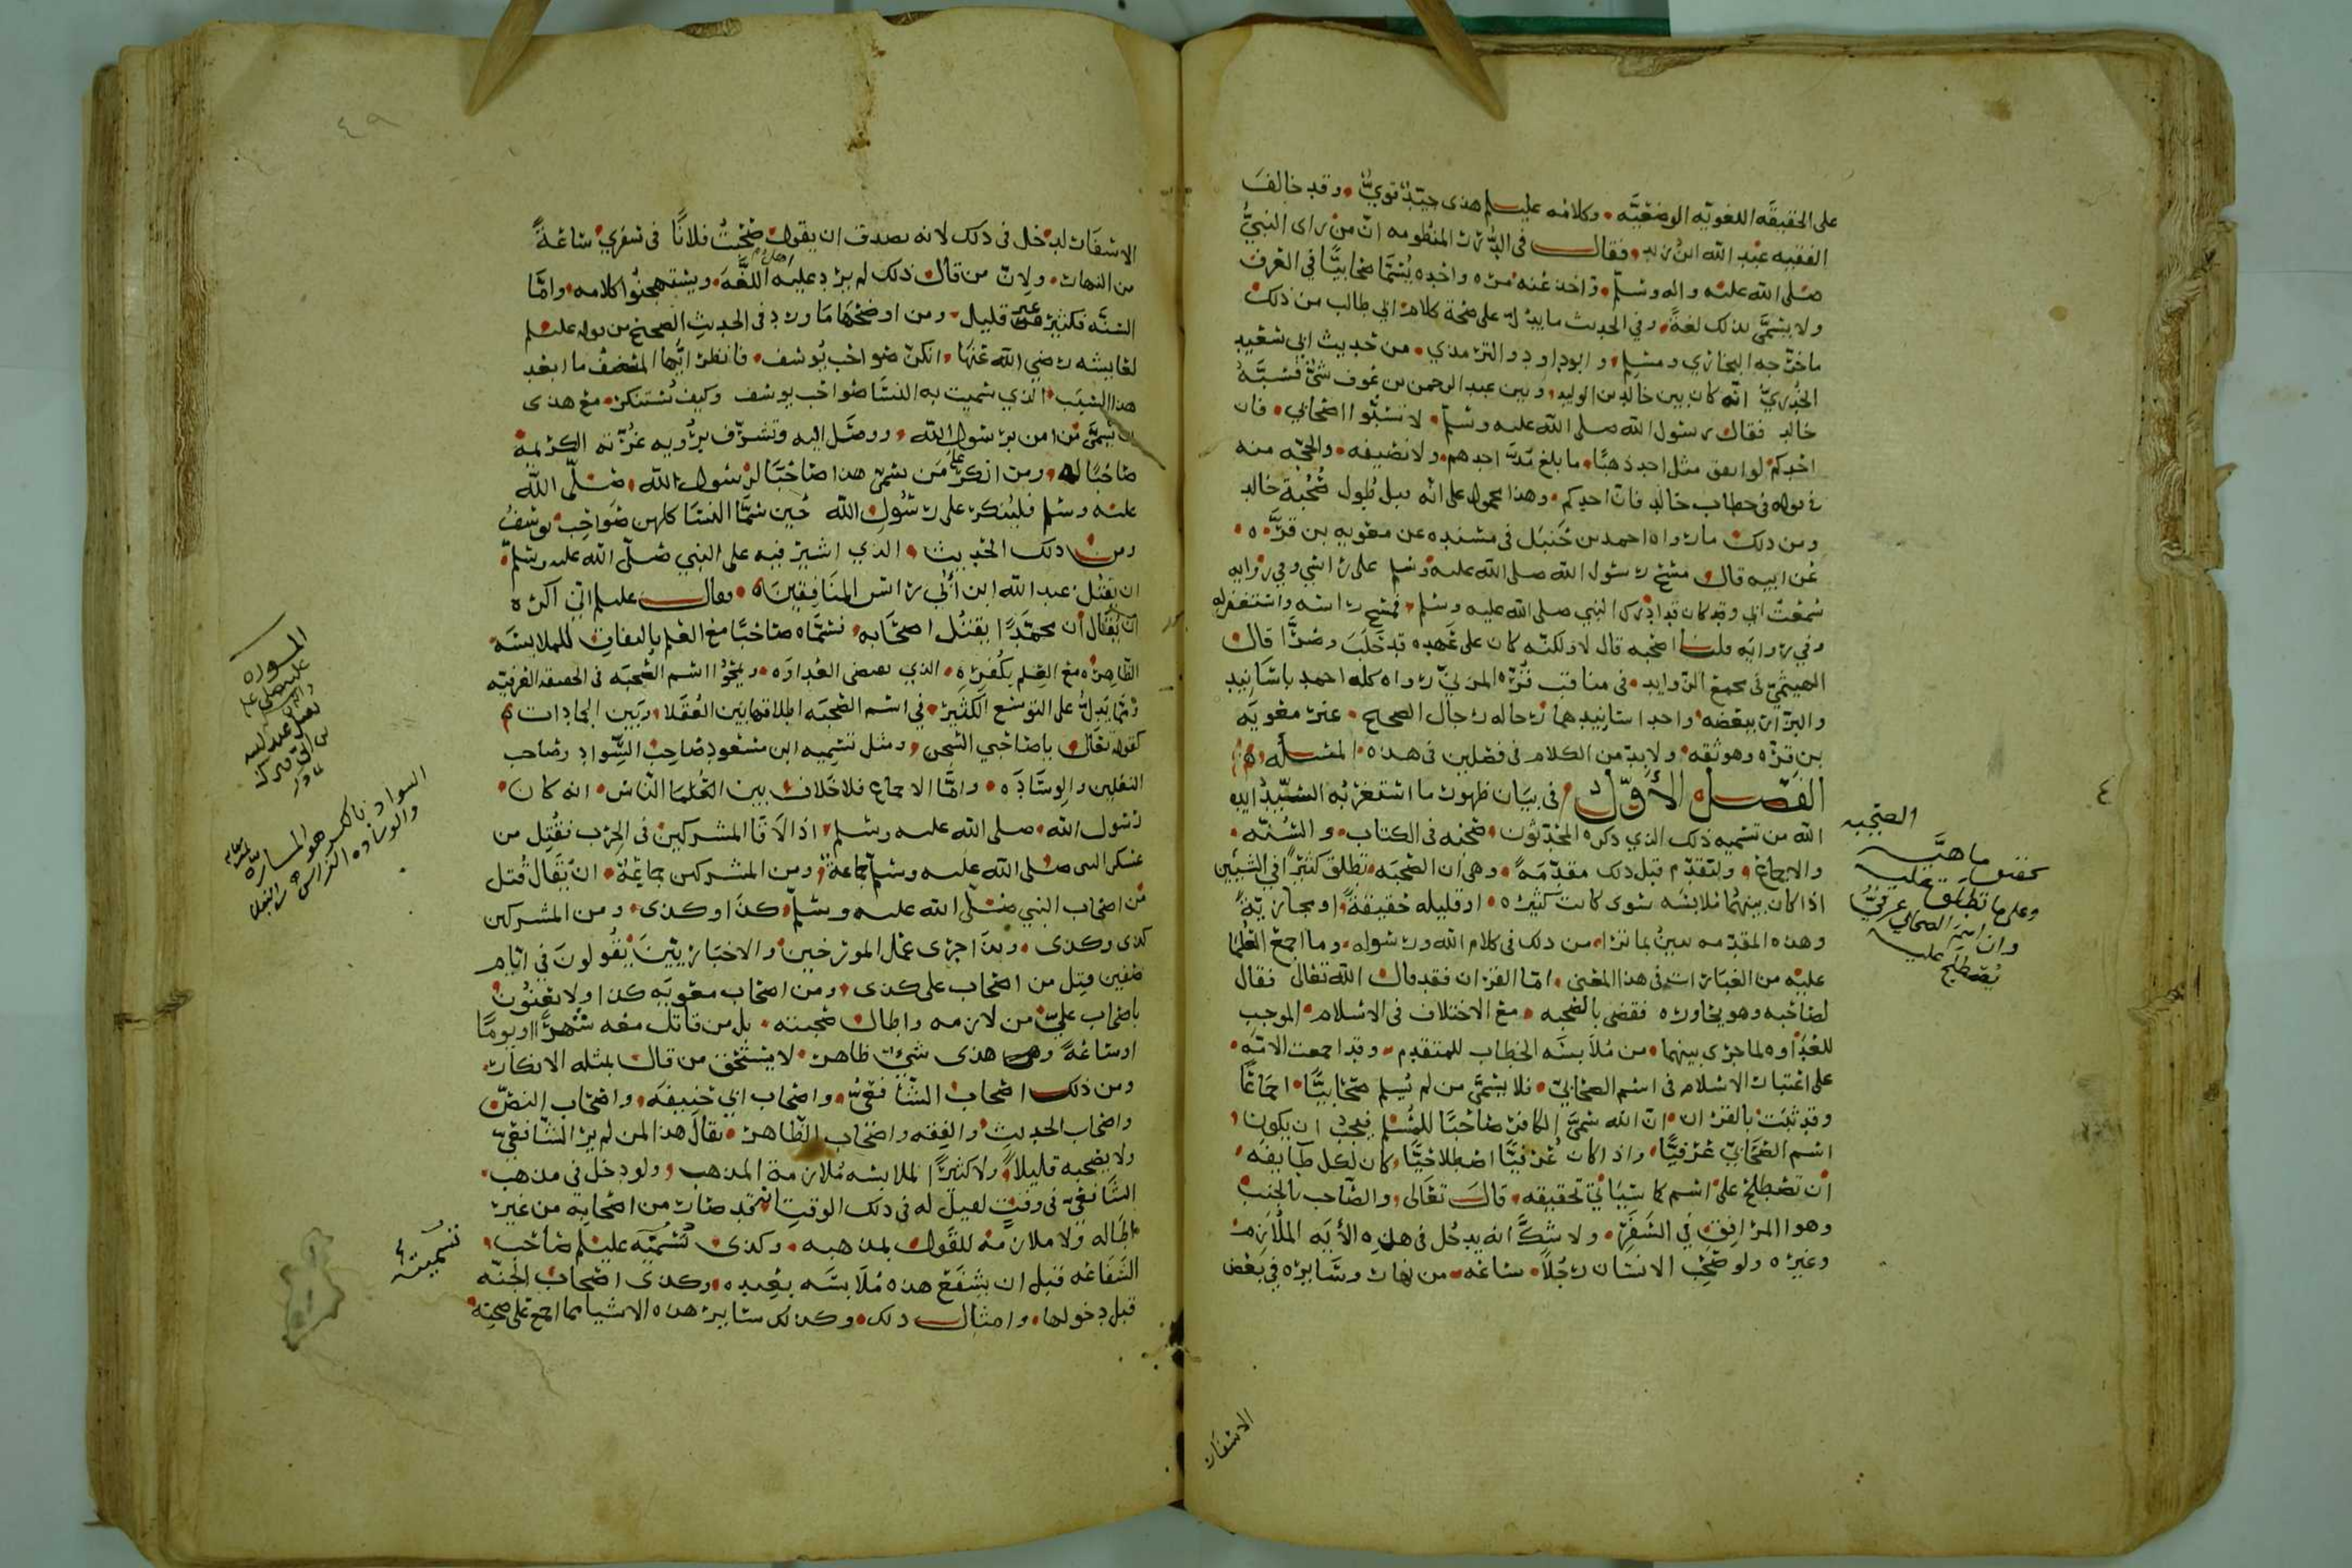 على الحقيقه اللغويه الوضعيه وكلامه عليلم هذى جيد قوي وقد خالف
الفقيه عبد الله ابن زيد فقال في الدرر المنظومه ان من راى النبي
صلى الله عليه واله وسلم واخذ عنه مره واحده يسما صحابيا في العرف
ولا يسمى بذلك لغة وفي الحديث ما يدل على صحة كلام ابي طالب من ذلك
ما خرجه البخاري ومسلم وابو داود والترمذي من حديث ابي سعيد
الخدري انه كان بين خالد بن الوليد وبين عبد الرحمن بن عوف شي فسبه
خالد فقال رسول الله صلى الله عليه وسلم لا تسبوا اصحابي فان
احدكم لو انفق مثل احد ذهبا ما بلغ مد احدهم ولا نصيفه والحجه منه
في قوله في خطاب خالد فان احدكم وهذا محمول على انه قبل طول صحبة خالد
ومن ذلك ما رواه احمد بن حنبل في مسنده عن معويه بن قره
عن ابيه قال مسح رسول الله صلى الله عليه وسلم على راسي وفي روايه
سمعت ابي وقد كان قد ادرك النبي صلى الله عليه وسلم فمسح راسه واستغفر له
وفي روايه قلنا اصحبه قال لا ولكنه كان على عهده قد حلب وصر قال
الهيثمي في مجمع الزوايد في مناقب قره المزني رواه كله احمد باسانيد
والبزار ببعضه واحد اسانيدهما رجاله رجال الصحيح عير معويه
بن قره وهو ثقه ولا بد من الكلام في فصلين في هذه المسله
الفصل الأول في بيان ظهور ما استغربه السيد ايده
الله من تسميه ذلك الذي ذكره المحدثون صحبه في الكتاب والسنه
والاجماع ولنقدم قبل ذلك مقدمة وهي ان الصحبه تطلق كثيرا في الشيين
اذا كان بينهما ملابسه سوى كانت كثيره او قليله حقيقة او مجازية
وهذه المقدمه تبين بما ترا من ذلك في كلام الله ورسوله وما اجمع العلما
عليه من العبارات في هذا المعنى اما القران فقد قال الله تعالى فقال
لصاحبه وهو يحاوره فقضى بالصحبه مع الاختلاف في الاسلام الموجب
للعداوه لما جرى بينهما من ملابسه الخطاب للمتقدم وقد اجمعت الامه
على اعتبار الاسلام في اسم الصحابي فلا يسمى من لم يسلم صحابيا اجماعا
وقد ثبت بالقران ان الله سمى الكافر صاحبا للمسلم فيجب ان يكون
اسم الصحابي عرفيا واذا كان عرفيا اصطلاحيا كان لكل طايفه
ان تصطلح على اسم كما سياتي تحقيقه قال تعالى والصاحب بالجنب
وهو المرافق في السفر ولا شك انه يدخل في هذه الأيه الملازم
وغيره ولو صحب الانسان رجلا ساعه من نهار وسايره في بعض
الاسفار
الصحبه
تحقيق ماهية
وعلى ما تطلق عليه
وان اسم الصحابي عرفي
يصطلح عليه
٤
٤٩
الاسفار لدخل في ذلك لانه يصدق ان يقول صحبت فلانا في سفري ساعة
من النهار ولان من قال ذلك لم يرد عليه اهل اللغه ويستهجنوا كلامه واما
السنه فكثير غير قليل ومن اوضحها ما ورد في الحديث الصحيح من قوله عليلم
لعايشه رضي الله عنها انكن صواحب يوسف فانظر ايها المنصف ما ابعد
هذا السبب الذي سميت به النسا صواحب يوسف وكيف تستنكر مع هذى
ان يسمى من امن برسول الله ووصل اليه وتشرف برؤيه غرته الكريمه
صاحبا له ومن انكر على من يسمى هذا صاحبا لرسول الله صلى الله
عليه وسلم فلينكر على رسول الله حين سما النسا كلهن صواحب يوسف
ومن ذلك الحديث الذي اشير فيه على النبي صلى الله عليه وسلم
ان يقتل عبد الله ابن أبي راس المنافقين وقال عليلم اني اكره
ان يقال ان محمدا يقتل اصحابه فسماه صاحبا مع العلم بالنفاق للملابسه
الظاهره مع العلم بكفره الذي يقتضى العداوه ويمحو اسم الصحبه في الحقيقه العرفيه
ومما يدل على التوسع الكثير في اسم الصحبه اطلاقها بين العقلا وبين الجمادات
كقوله تعالى ياصاحبي السجن ومثل تسميه ابن مسعود صاحب السواد وصاحب
النعلين والوساده واما الاجماع فلا خلاف بين العلما الناس انه كان
رسول الله صلى الله عليه وسلم اذا لاقا المشركين في الحرب فقتل من
عسكر النبي صلى الله عليه وسلم جماعة ومن المشركين جماعة ان يقال قتل
من اصحاب النبي صلى الله عليه وسلم كذا وكذى ومن المشركين
كذى وكذى وبذا جرى عمل المورخين والاخباريين يقولون في ايام
صفين قتل من اصحاب على كذى ومن اصحاب معويه كذا ولا يعنون
باصحاب علي من لازمه واطال صحبته بل من قاتل معه شهرا او يوما
او ساعة وهذى شي ظاهر لا يستحق من قال بمثله الانكار
ومن ذلك اصحاب الشافعي واصحاب ابي حنيفه واصحاب النص
واصحاب الحديث والفقه واصحاب الظاهر يقال هذا لمن لم ير الشافعي
ولا يصحبه قليلا ولا كثيرا لملابسه ملازمة المذهب ولو دخل في مذهب
الشافعي في وقت لقيل له في ذلك الوقت قد صار من اصحابه من غير
اطاله ولا ملازمه للقول بمذهبه وكذى تسميته عليلم صاحب
الشفاعه قبل ان يشفع هذه ملابسه بعيده وكذى اصحاب الجنه
قبل دخولها وامثال ذلك وكذلك ساير هذه الاشيا مما اجمع على صحته
السواد بالكسر هو المساره
تسميته